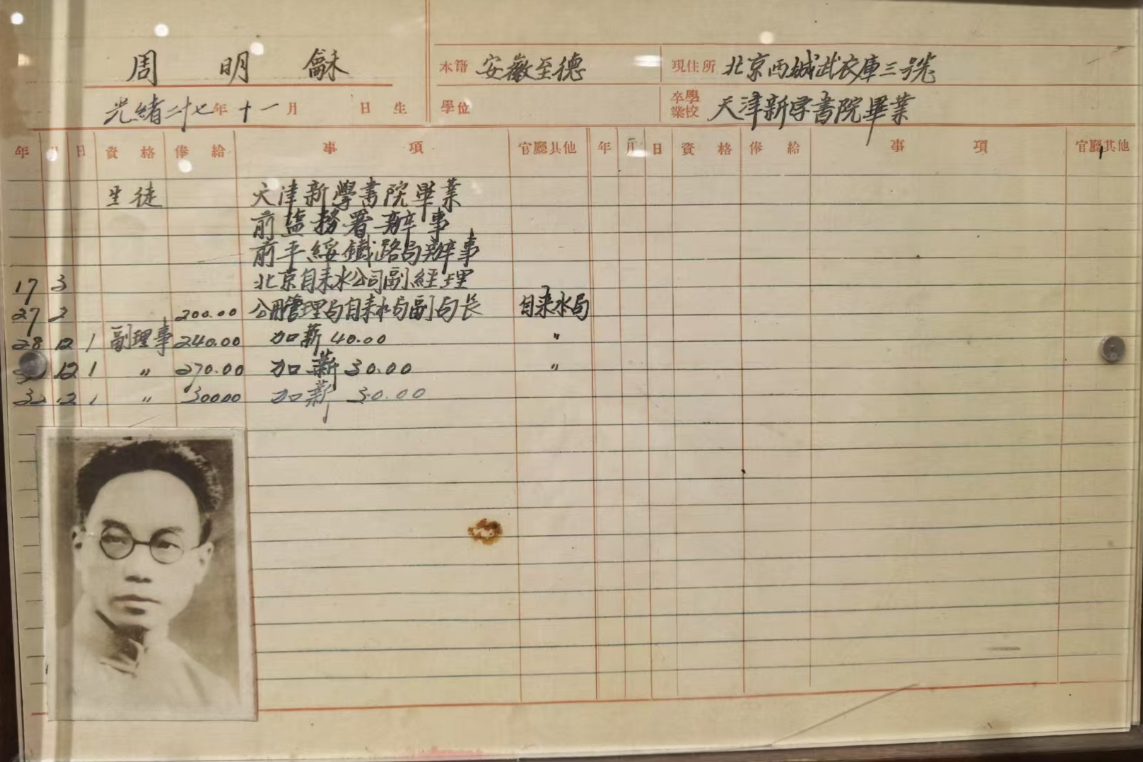 周明龢 本籍 安徽至德 現住所 北京西城武衣庫三號
光緒二十七年十一月 日生 學位 學校卒業 天津新学書院畢業
年 月 日 資格 俸給 事項 官廳其他 年 月 日 資格 俸給 事項 官廳其他
生徒 天津新學書院畢業
前鹽務署辦事
前平綏鐵路局辦事
17 3 北京自来水公司副經理
27 2 200.00 公用管理局自来水局副局长 自来水局
28 12 1 副理事 240.00 加薪 40.00 〃
12 1 〃 270.00 加薪 30.00 〃
32 12 1 〃 300.00 加薪 30.00